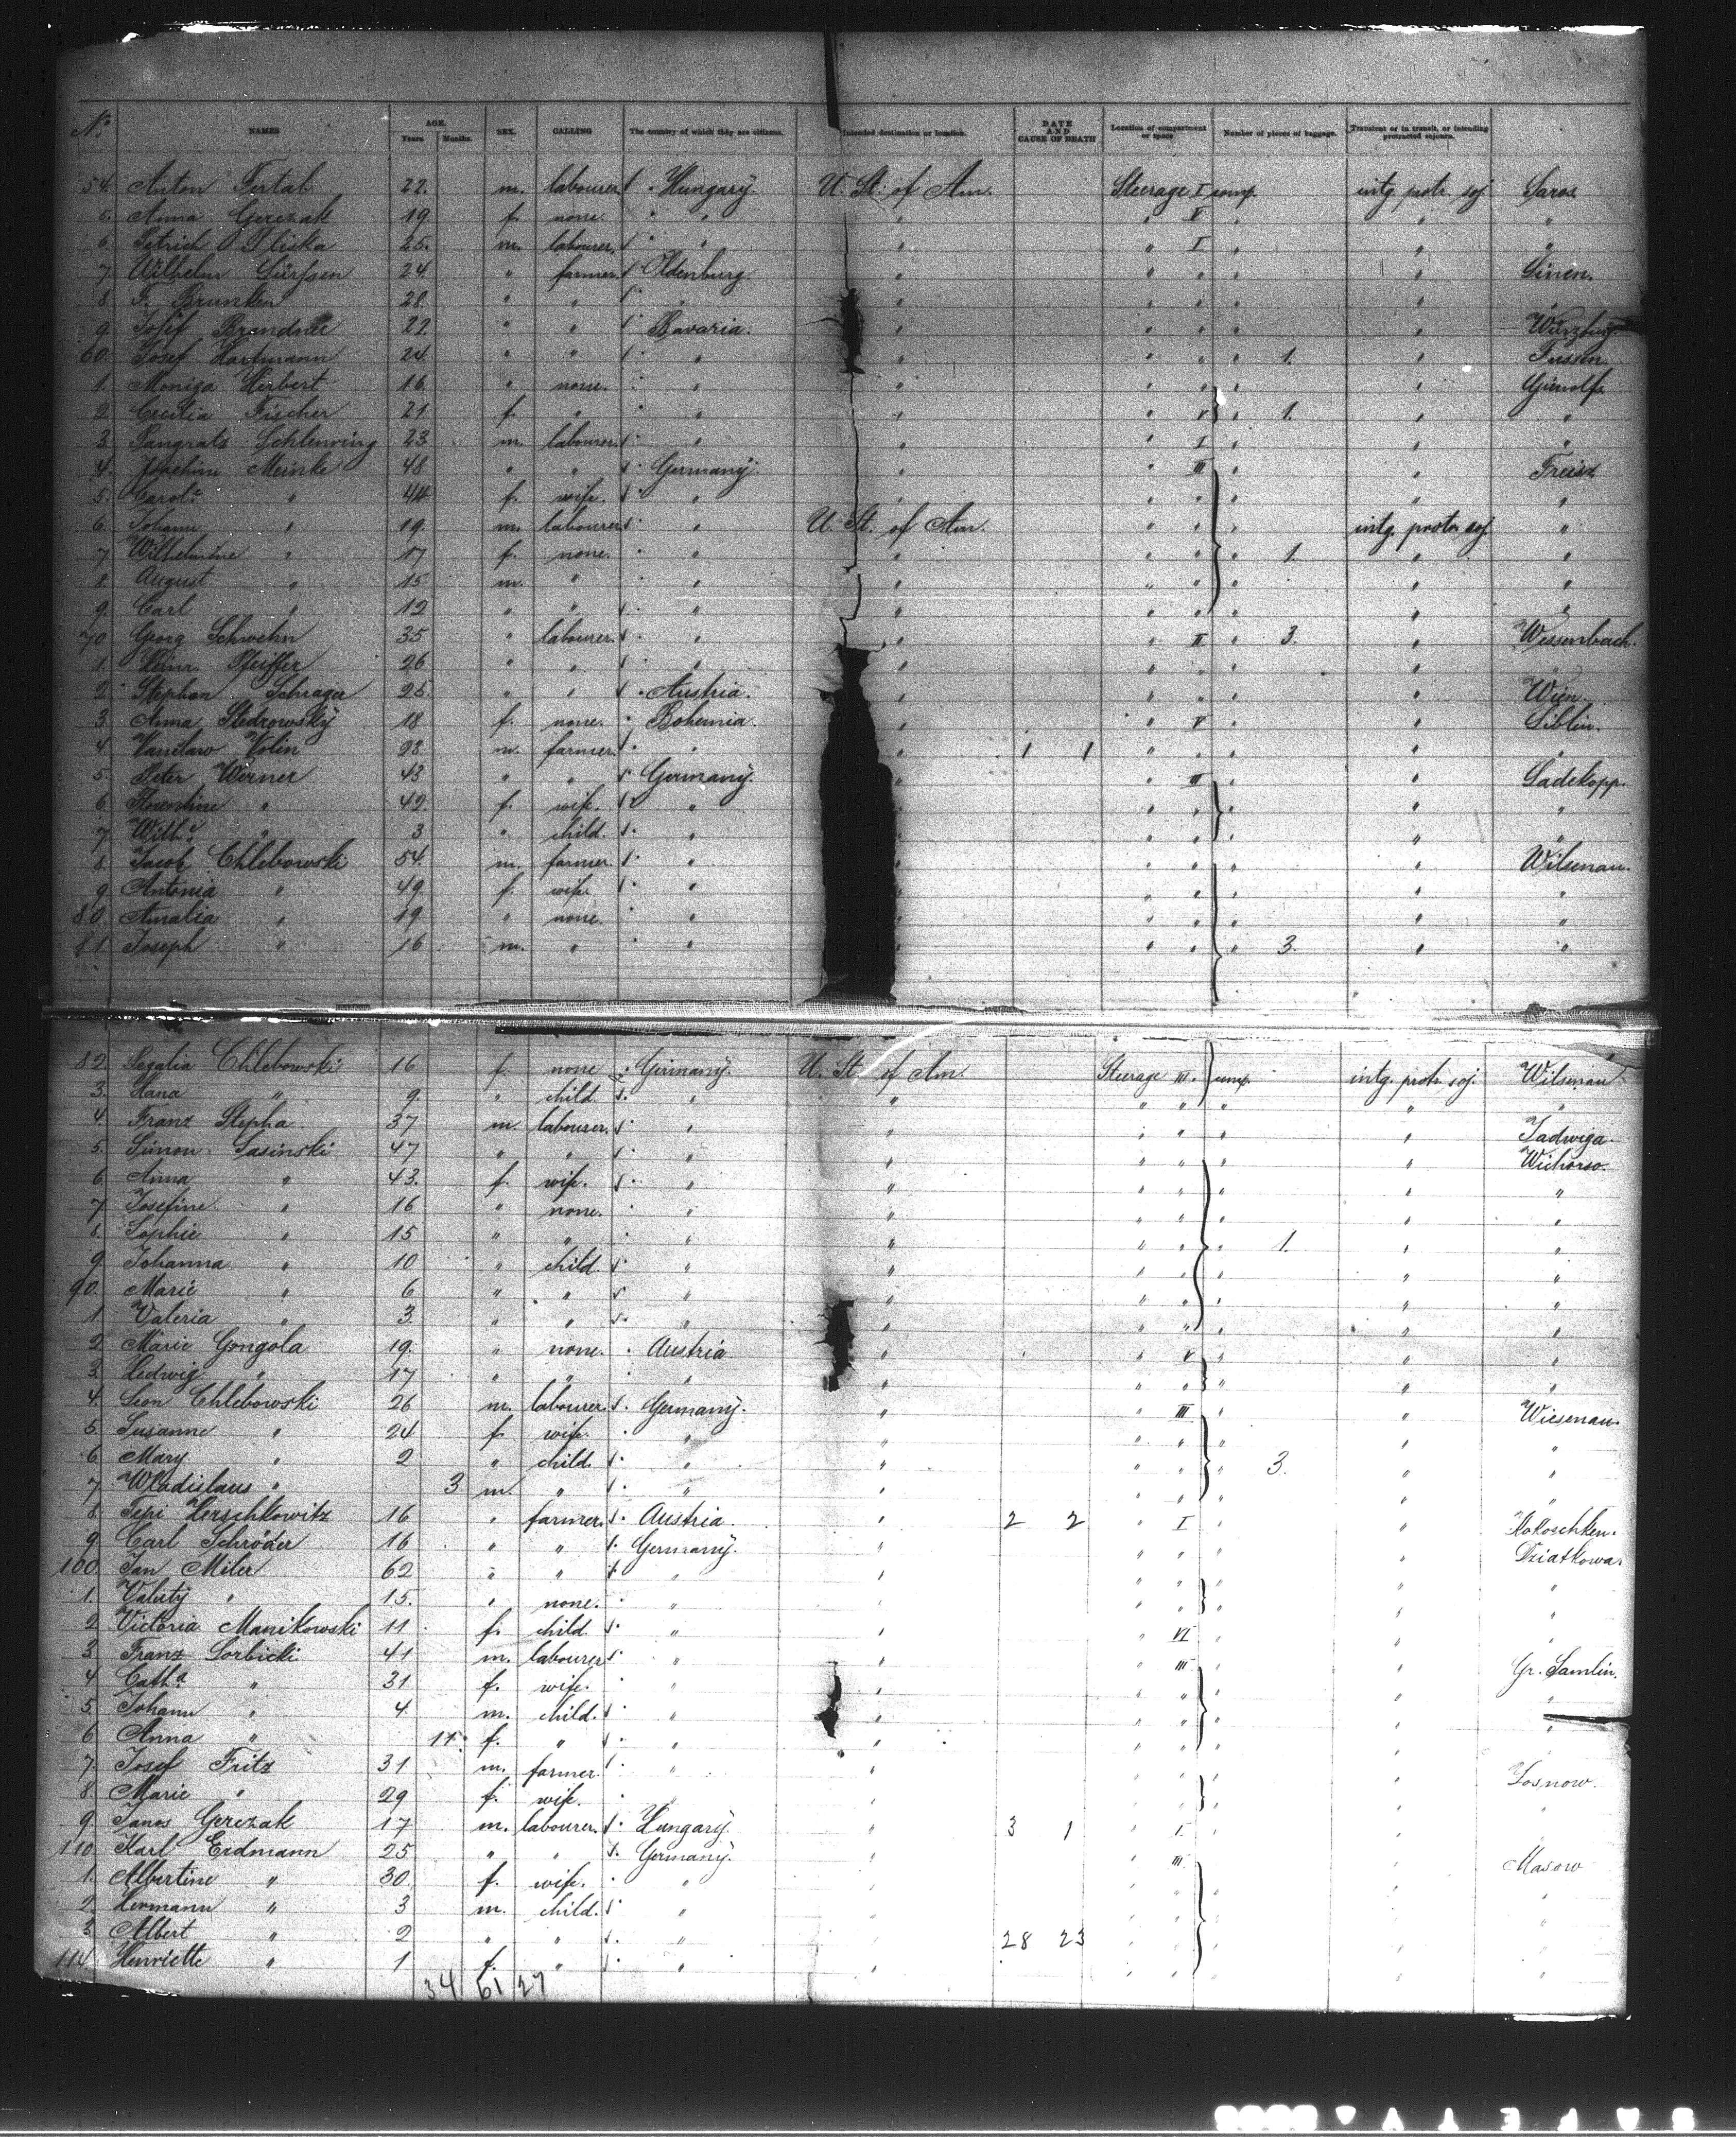 No. NAMES AGE. Years. Months. SEX. CALLING The country of which they are citizens. Intended destination or location. DATE AND CAUSE OF DEATH Location of compartment or space Number of pieces of baggage. Transient or in transit, or intending protracted sojourn.
54. Anton Fertal 22. m. labourer Hungary. U. St. of Am. Steerage I comp. intg. protr. soj. Saros.
5. Anna Gerczak 19. f. none. " " " " V " " "
6. Petrich Pliska 25. m. labourer. " " " " I " " "
7. Wilhelm 24. " farmer. Oldenburg. " " " " "
8. F. Brunken 28. " " " " " " " " "
9. Josef 22. " " Bavaria. " " " " " Würzburg
60. Josef Hartmann 24. " " " " " " " 1. " Fussen.
1. Moniga Herbert 16. " none. " " " " " "
2. Cecilia Fischer 21 f. " " " " V " 1. " "
3. 23. m. labourer. " " " I " " "
4. Joachim Meinke 48 " " Germany. " " III " "
5. Carole " 44 f. wife. " " " " " " "
6. Johann " 19. m. labourer " U. St. of Am. " " " intg. protr. soj. "
7. Wilhelmine " 17 f. none. " " " " " 1. " "
8. August " 15 m. " " " " " " "
9. Carl " 12 " " " " " " " " "
70 Georg Schwehn 35 " labourer. " " " II " 3. " Wessenbach.
1. Heinr. Pfeiffer 26 " " " " " " " "
2. Stephan Schrager 25. " " Austria. " " " " " Wien.
3. Anna Stedrowsky 18 f. none. Bohemia. " " V " " Liblin.
4. Volin 28. m. farmer. " " 1 1 " " " " "
5. Peter Werner 43 " " Germany. " " III " " Ladekopp.
6. Florentine " 42. f. wife. " " " " " " "
7. Wilhe. " 3 " child. " " " " " " "
8. Jacob Chlebowski 54. m. farmer. " " " " " " Wilsenau.
9. Antonia " 49. f. wife " " " " " " "
80. Amalia " 19. " none. " " " " " " "
81. Joseph " 16 m. " " " " " " 3. " "
82 Chlebowski 16 f. none Germany. U. St. of Am. Steerage III. comp. intg. protr. soj. Wilsenau
3. Hana " 9. " child " " " " " " "
4. Franz Stepha 37 m. labourer. " " " " " " Jadwiga.
5. Simon Sasinski 47 " " " " " " " "
6. Anna " 43. f. wife. " " " " " " "
7. Josefine " 16 " none. " " " " " " "
8. Sophie " 15 " " " " " " " 1. " "
9. Johanna " 10 " child " " " " " " "
90. Marie " 6 " " " " " " " " "
1. Valeria " 3. " " " " " " " " "
2. Marie Gongola 19. " none. Austria " " V " " "
3. Hedwig " 17 " " " " " " " " "
4. Leon Chlebowski 26 m. labourer. Germany. " " III " " Wiesenau.
5. Susanne " 24 f. wife. " " " " " " "
6. Mary " 2 " child. " " " " " 3. " "
7. Wladislaus " 3 m. " " " " " " " "
8. Pepi Herschkowitz 16 " farmer. Austria. " 2 2 " I " " Kokoschken.
9. Carl Schröder 16 " " Germany. " " " " " Dziatkowa.
100. Jan Miler 62 " " " " " " " " "
1. " 15. " none. " " " " " " "
2. Victoria Manikowski 11 f. child. " " " VI " " "
3. Franz Sorbicki 41 m. labourer " " " III " " Gr. Samlin.
4. Catha. " 31 f. wife. " " " " " " "
5. Johann " 4 m. child. " " " " " " "
6. Anna " 11. f. " " " " " " " "
7. Josef Fritz 31 m. farmer. " " " " " " Losnow.
8. Marie " 29 f. wife. " " " " " " "
9. Janos Gerczak 17 m. labourer. Hungary. " 3 1 " I " "
110. Karl Erdmann 25 " " Germany. " " III " " Masow
1. Albertine " 30. f. wife. " " " " " " "
2. Hermann " 3 m. child. " " " " " " "
3. Albert " 2 " " " " 28 23 " " " " "
114. Henriette " 1 f. " " " " " " " "
34 61 27